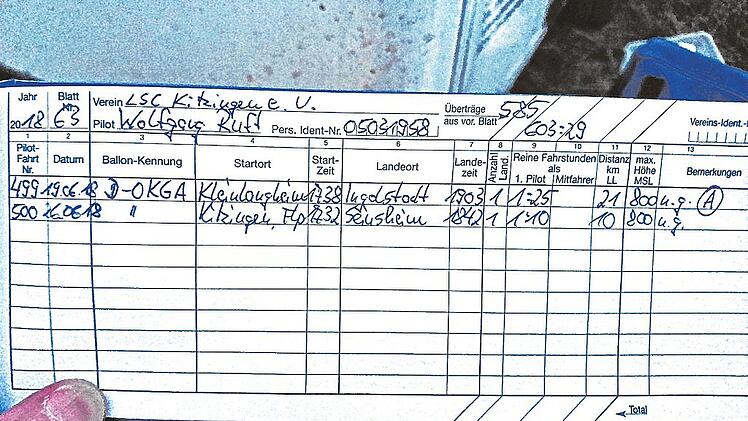 Jahr Blatt Nr. Verein LSC Kitzingen e. V. Überträge aus vor. Blatt 585 Vereins-Ident.-
2018 63 Pilot Wolfgang Ruft Pers. Ident-Nr. 05031958 603:29
1 2 3 4 5 6 7 8 9 10 11 12 13
Pilot-Fahrt Nr. Datum Ballon-Kennung Startort Start-Zeit Landeort Lande-zeit Anzahl Land. Reine Fahrstunden als 1. Pilot Mitfahrer Distanz km LL max. Höhe MSL Bemerkungen
499 19.06.18 D-OKGA Kleinlangheim 1738 Ingolstadt 1903 1 1:25 21 800 u.g. A
500 26.06.18 " Kitzingen, Flp 1732 Seinsheim 1842 1 1:10 10 800 u.g.
Total